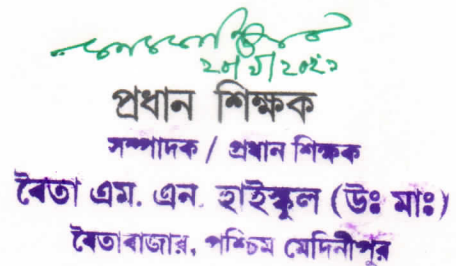 প্রধান শিক্ষক
সম্পাদক / প্রধান শিক্ষক
বৈতা এম. এন. হাইস্কুল (উঃ মাঃ)
বৈতাবাজার, পশ্চিম মেদিনীপুর